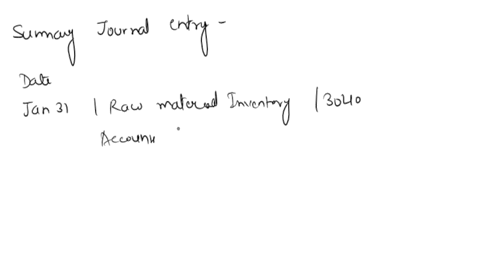 Summary Journal entry -
Date
Jan 31 | Raw material Inventory | 3040
Account